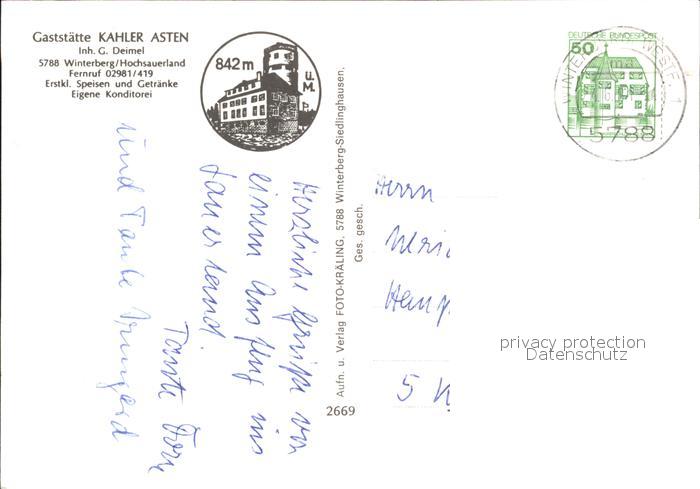 Gaststätte KAHLER ASTEN
Inh. G. Deimel
5788 Winterberg/Hochsauerland
Fernruf 02981/419
Erstkl. Speisen und Getränke
Eigene Konditorei
842 m
ü. M.
DEUTSCHE BUNDESPOST
50
5788
Herzliche Grüße von
einem Ausflug ins
Sauerland.
Tante
und Tante Irmgard
Aufn. u. Verlag FOTO-KRÄLING, 5788 Winterberg-Siedlinghausen,
Ges. gesch.
2669
Herrn
5 K
privacy protection
Datenschutz